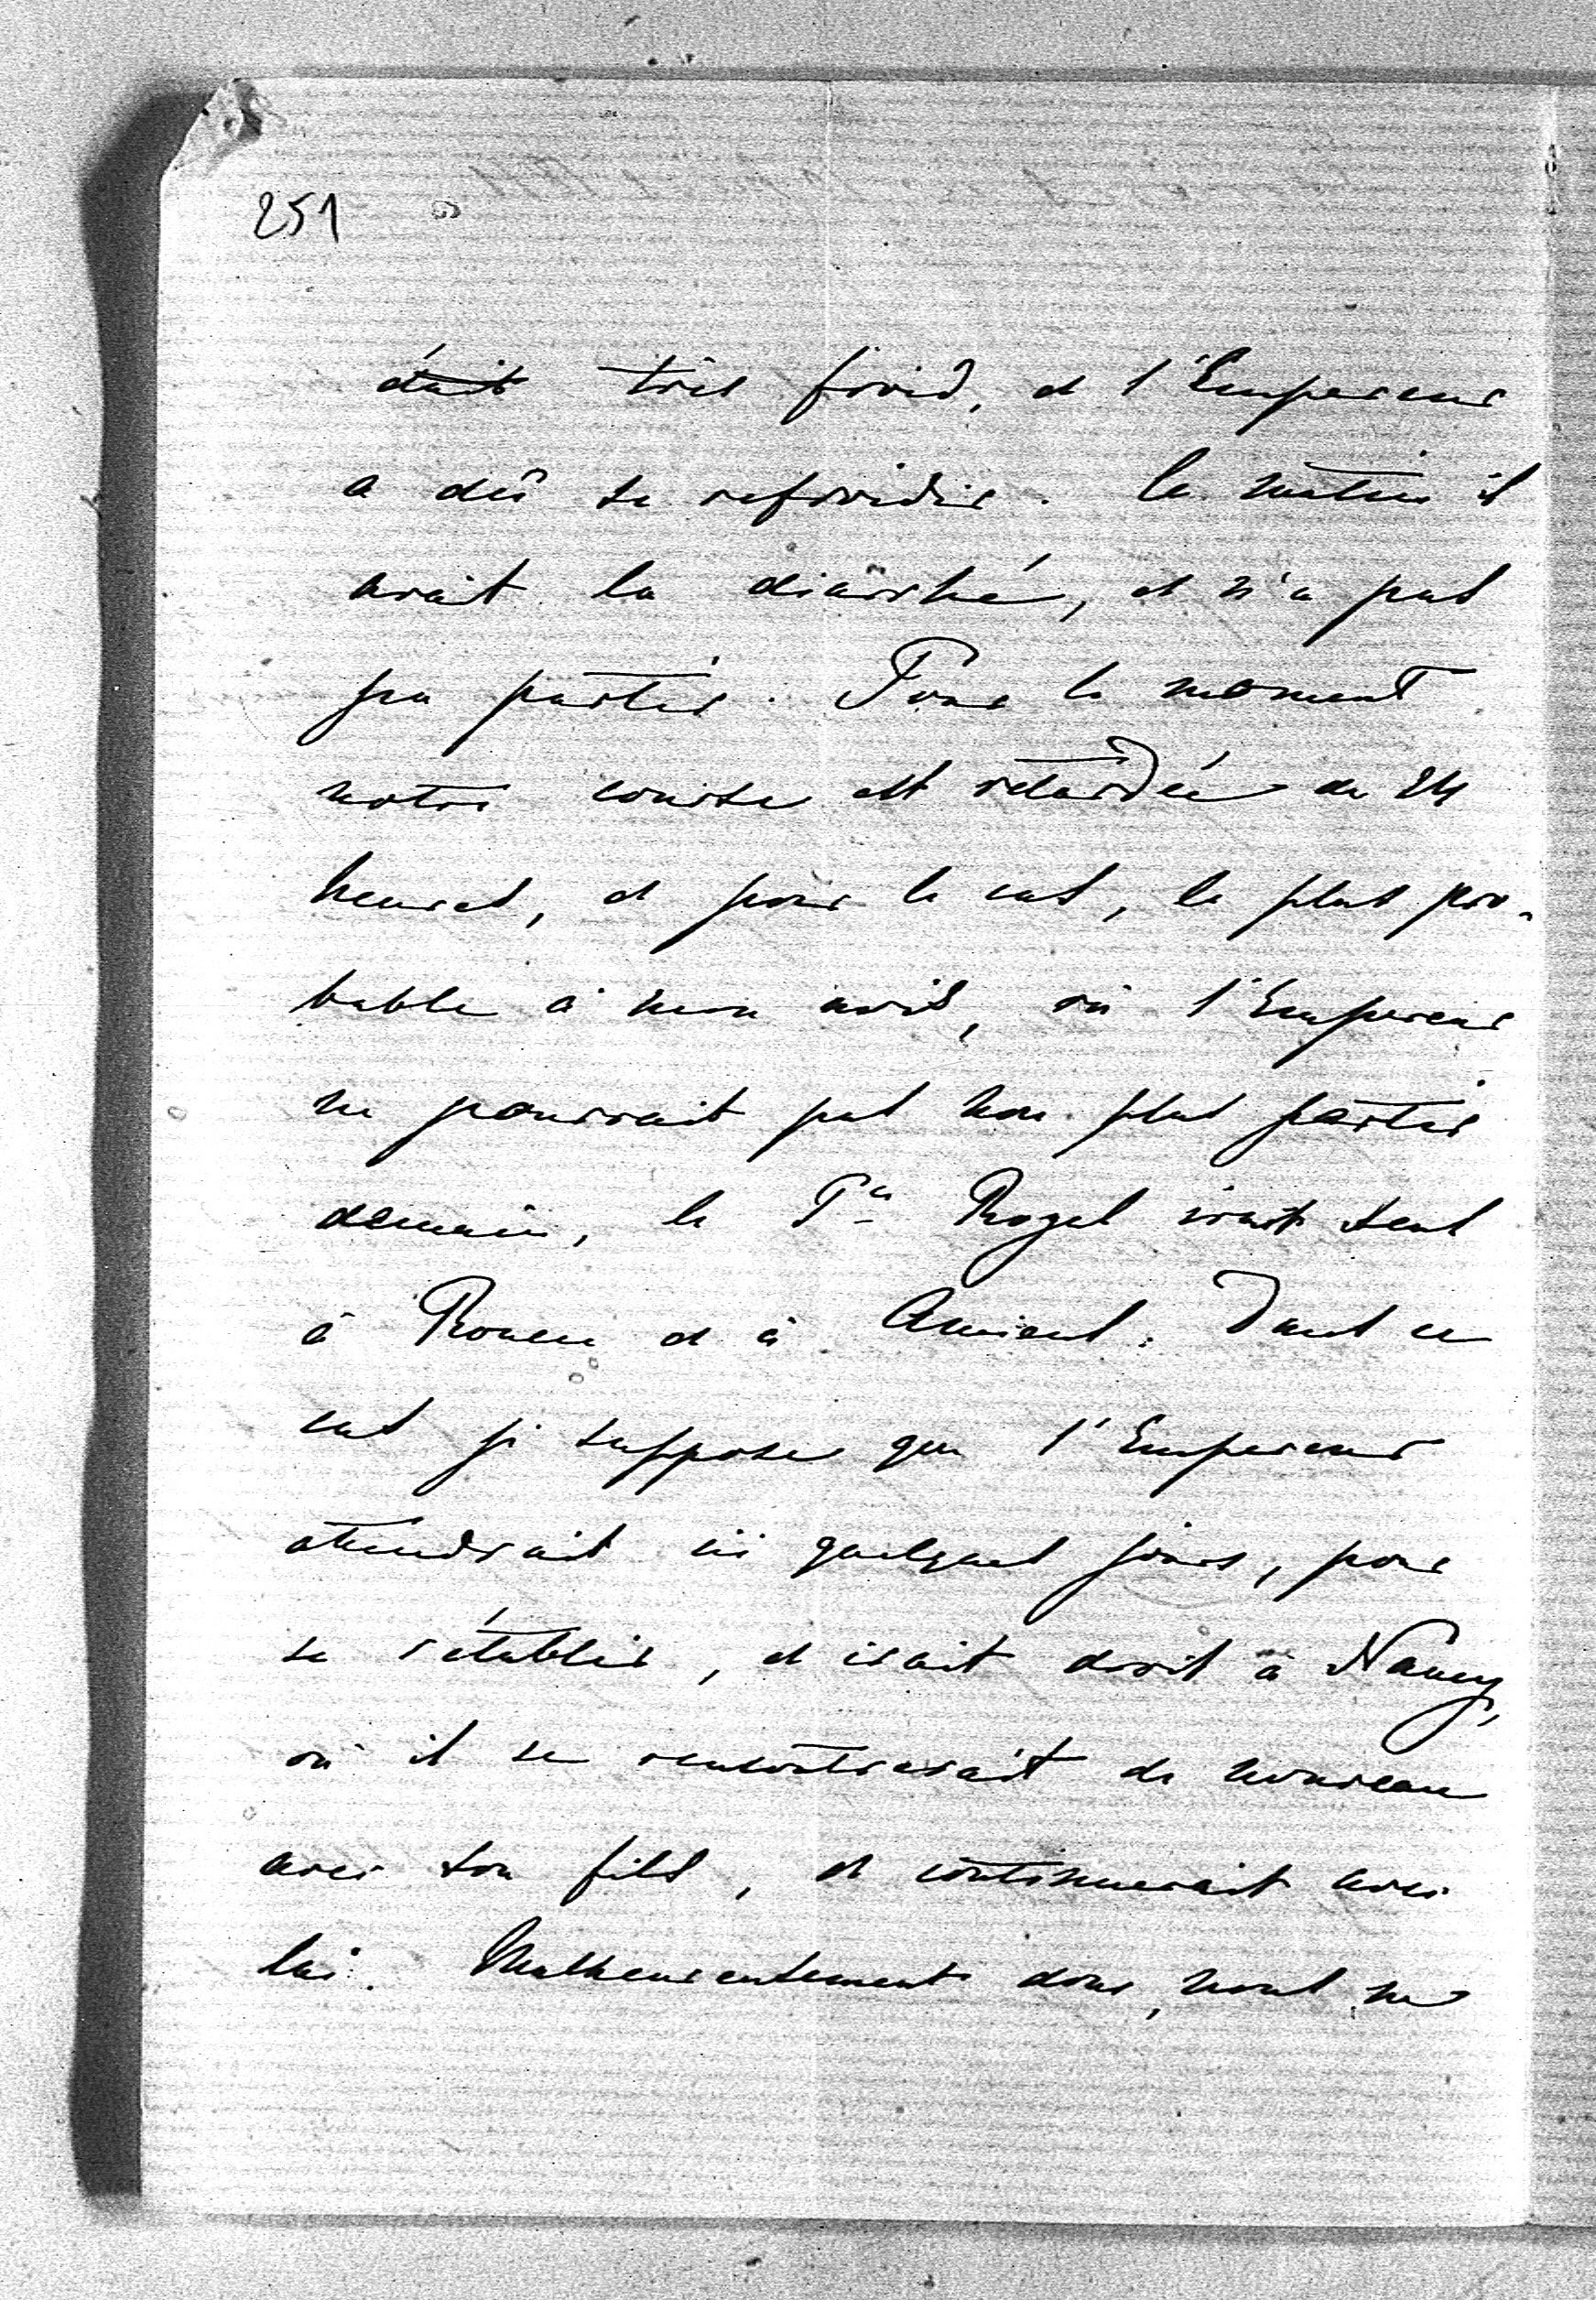 251
était très froid, et l'Empereur
a dû se refroidir. Ce matin il
avait la diarrhé, et n'a pas
pu partir. Pour le moment
notre course est retardée de 24
heures, et pour le cas, le plus pro-
bable à mon avis, où l'Empereur
ne pourrait pas non plus partir
demain, le Pce Royal irait seul
à Rouen et à Amiens. Dans ce
cas je suppose que l'Empereur
attendrait ici quelques jours, pour
se rétablir, et irait droit à Nancy,
où il se rencontrerait de nouveau
avec son fils, et continuerait avec
lui. Malheureusement donc, nous ne